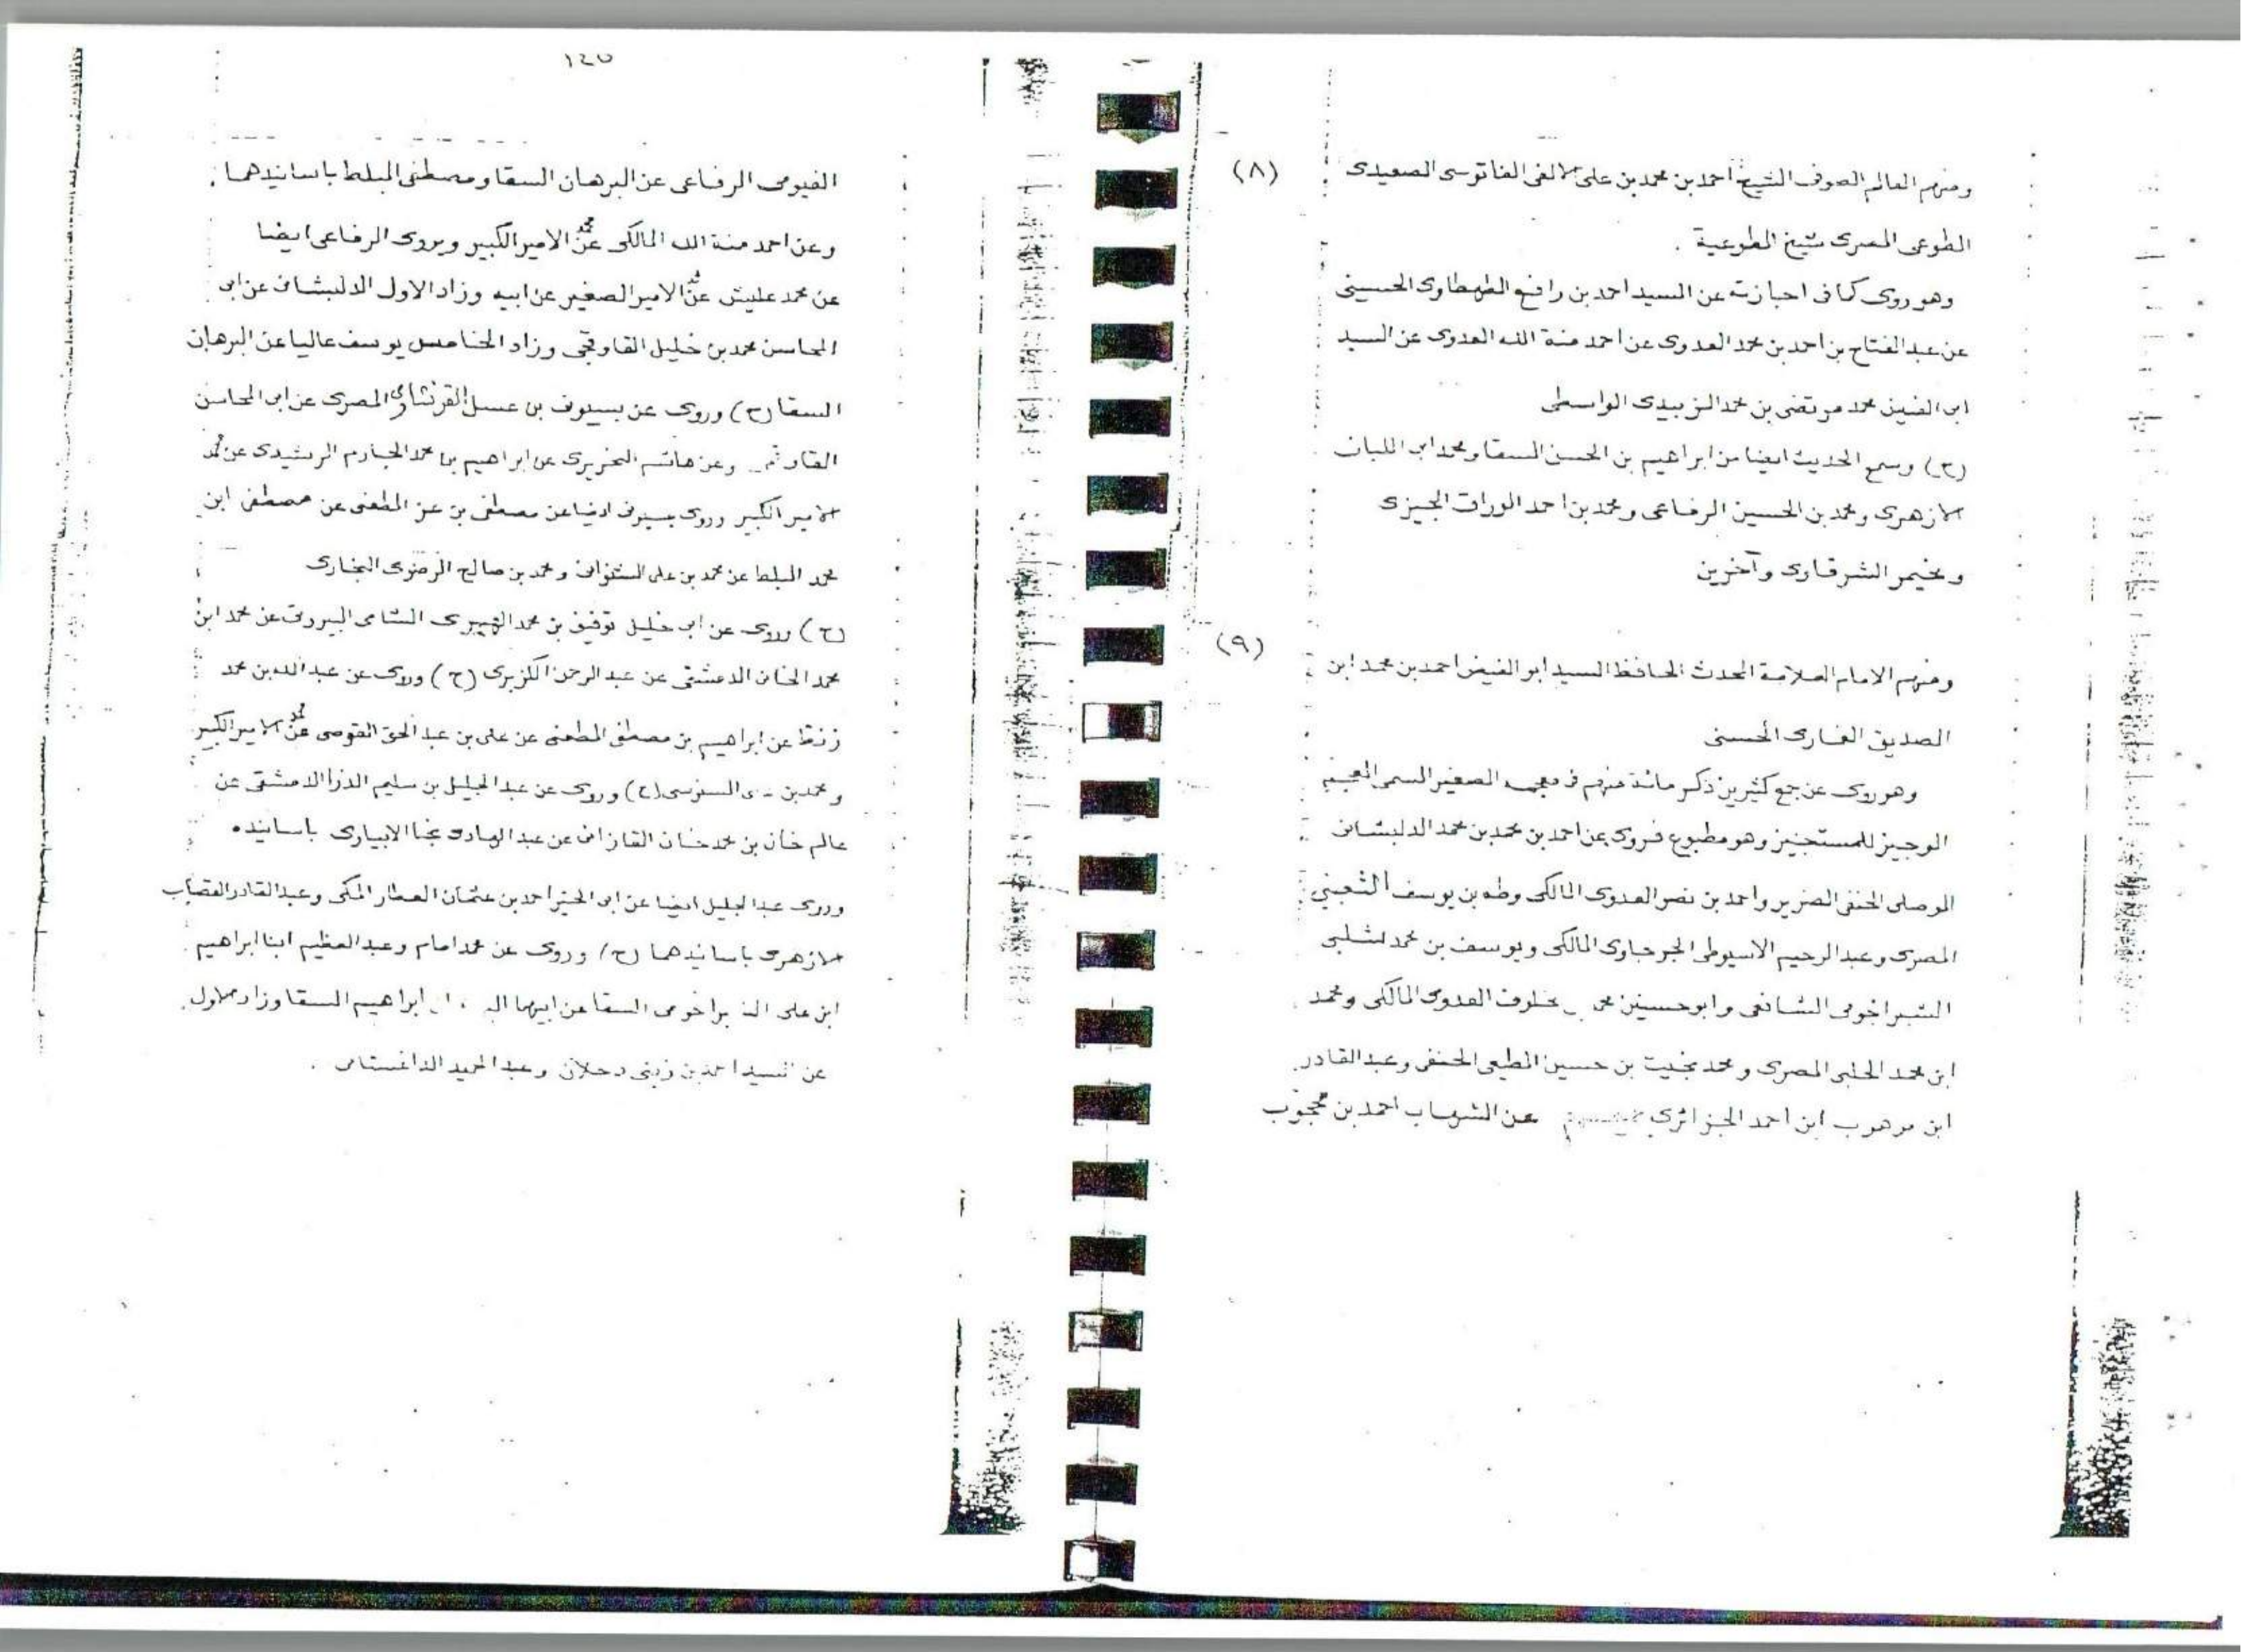 (٨)
ومنهم العالم الصوفى الشيخ احمد بن محمد بن على الالفى الفاتوسى الصعيدى
الطوعى المصرى شيخ الطوعية .
وهو روى كما فى اجازته عن السيد احمد بن رافع الطهطاوى الحسينى
عن عبد الفتاح بن احمد بن محمد العدوى عن احمد منة الله العدوى عن السيد
ابى الفيض محمد مرتضى بن محمد الزبيدى الواسطى
(ح) وسمع الحديث ايضا من ابراهيم بن الحسن السقا ومحمد ابى اللبان
الازهرى ومحمد بن الحسين الرفاعى ومحمد بن احمد الوراق الجيزى
ومخيمر الشرقاوى وآخرين
(٩)
ومنهم الامام العلامة المحدث الحافظ السيد ابو الفيض احمد بن محمد ابن
الصديق الغمارى الحسنى
وهو روى عن جمع كثيرين ذكر مائة منهم فى معجمه الصغير المسمى المعجم
الوجيز للمستجيز وهو مطبوع فروى عن احمد بن محمد بن محمد الدلبشانى
الموصلى الحنفى الضرير واحمد بن نصر العدوى المالكى وطه بن يوسف الشعبينى
المصرى وعبد الرحيم الاسيوطى الجرجاوى المالكى ويوسف بن محمد شلبى
الشبراخومى الشافعى وابو حسنين مخلوف العدوى المالكى ومحمد
ابن محمد الحلبى المصرى ومحمد بخيت بن حسين المطيعى الحنفى وعبد القادر
ابن موهوب ابن احمد الجزائرى عن الشهاب احمد بن محجوب
١٤٥
الفيومى الرفاعى عن البرهان السقا ومصطفى المبلط باسانيدهما
وعن احمد منة الله المالكى عن محمد الامير الكبير ويروى الرفاعى ايضا
عن محمد عليش عن محمد الامير الصغير عن ابيه وزاد الاول الدلبشانى عن ابى
المحاسن محمد بن خليل القاوقجى وزاد الخامس يوسف عاليا عن البرهان
السقا (ح) وروى عن بسيونى بن عسل القرنشاوى المصرى عن ابى المحاسن
وعن هاشم الخريرى عن ابراهيم بن محمد الجارم الرشيدى عن محمد
الامير الكبير وروى بسيونى ايضا عن مصطفى بن عز المطعنى عن مصطفى ابن
محمد المبلط عن محمد بن على الشنوانى ومحمد بن صالح الرضوى البخارى
(ح) وروى عن ابى خليل توفيق بن محمد الهبرى الشامى البيروتى عن محمد ابن
محمد الخانى الدمشقى عن عبد الرحمن الكزبرى (ح) وروى عن عبد الله بن محمد
زنط عن ابراهيم بن مصطفى المطعنى عن على بن عبد الحق القوصى عن محمد الامير الكبير
ومحمد بن السنوسى (ح) وروى عن عبد الجليل بن سليم الذرا الدمشقى عن
عالم خان بن محمد خان القازانى عن عبد الهادى نجا الابيارى باسانيده
وروى عبد الجليل ايضا عن ابى الخير احمد بن عثمان العطار المكى وعبد القادر القصاب
الازهرى باسانيدهما (ح) وروى عن محمد امام وعبد العظيم ابنا ابراهيم
ابن على الشبراخومى السقا عن ابيهما ابراهيم السقا وزاد الاول
عن السيد احمد بن زينى دحلان وعبد الحميد الداغستانى .